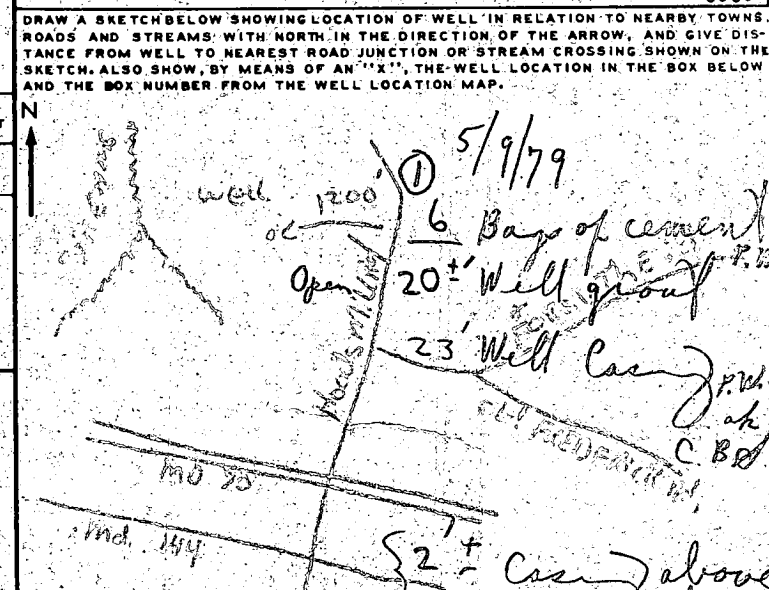 DRAW A SKETCH BELOW SHOWING LOCATION OF WELL IN RELATION TO NEARBY TOWNS,
ROADS AND STREAMS WITH NORTH IN THE DIRECTION OF THE ARROW, AND GIVE DIS-
TANCE FROM WELL TO NEAREST ROAD JUNCTION OR STREAM CROSSING SHOWN ON THE
SKETCH. ALSO SHOW, BY MEANS OF AN "X", THE WELL LOCATION IN THE BOX BELOW
AND THE BOX NUMBER FROM THE WELL LOCATION MAP.
N
① 5/9/79
well 1200'
6 Bags of cement
Open 20±' Well grout
FORSYTHE
23' Well Casing
P.W.
ok
C.B.
OLD FREDERICK
Md. 144
2'± Casing above